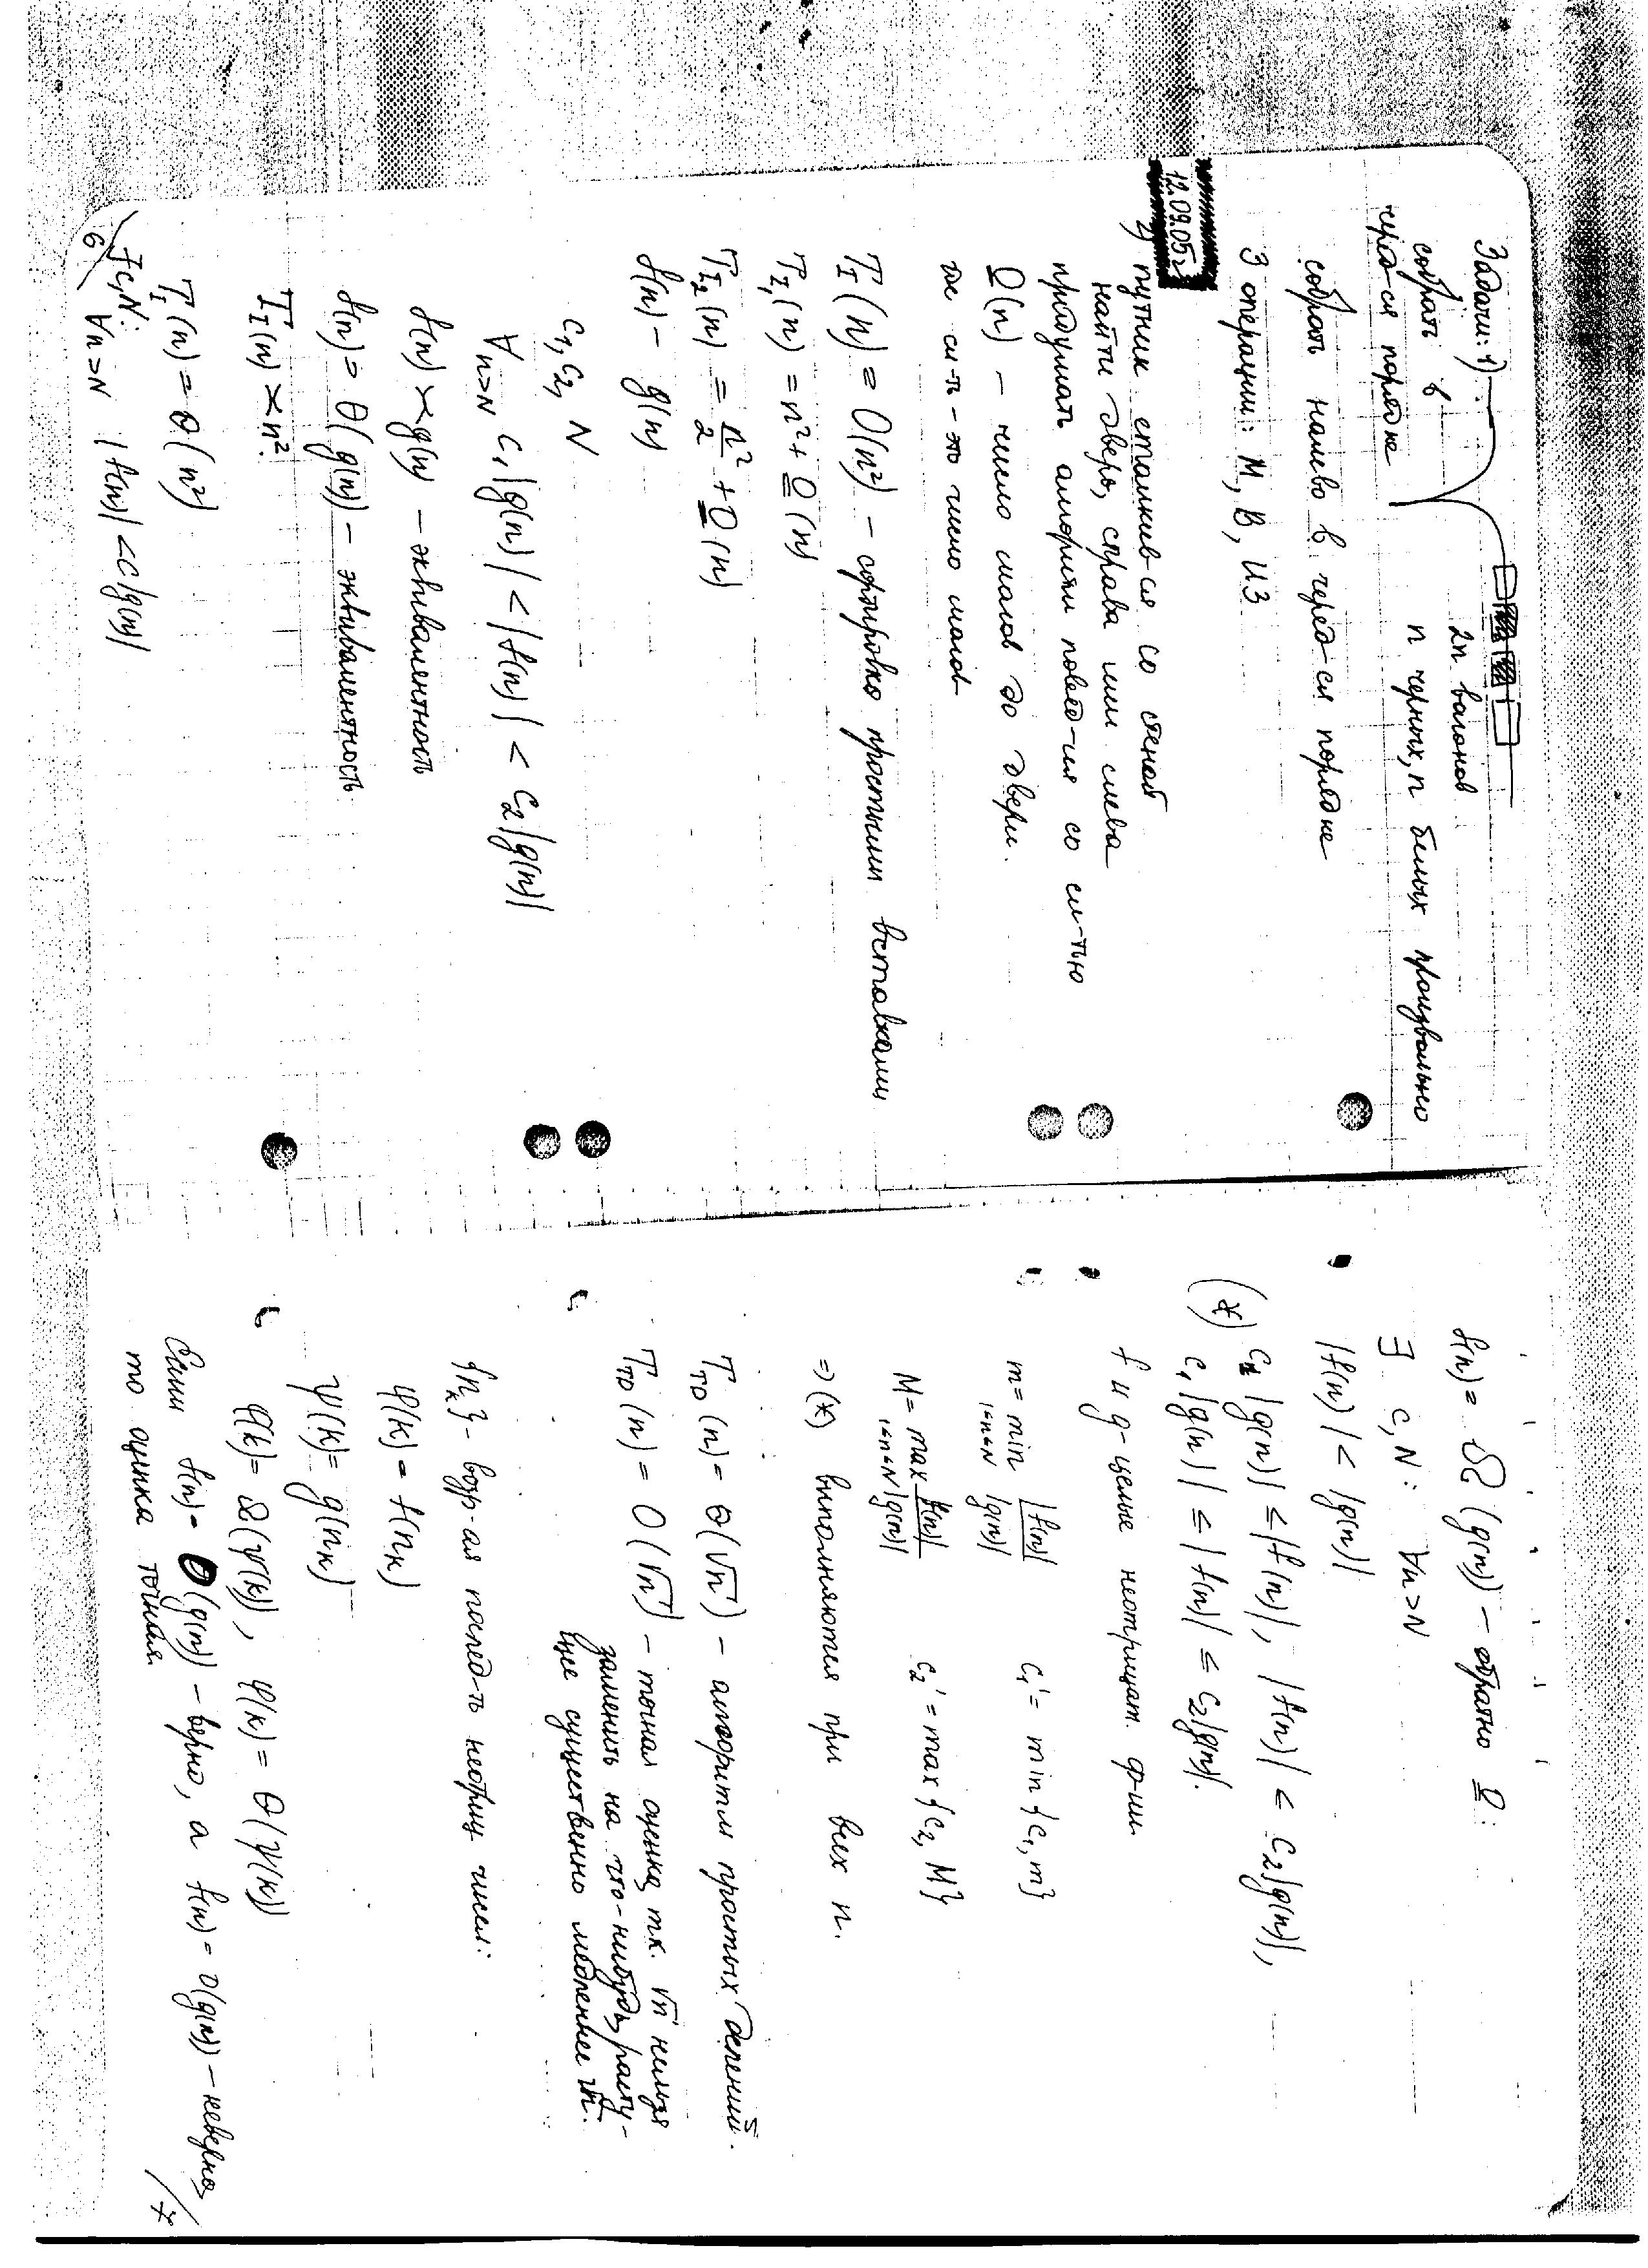 Задачи: 1)
2n вагонов
собрать в
черед-ся порядке
n черных, n белых произвольно
собрать налево в черед-ся порядке
3 операции: М, В, ИЗ
12.09.05г.
2) путник сталкив-ся со стеной
найти дверь, справа или слева
придумать алгоритм повед-ия со сл-тью
O(n) – число шагов до двери.
где сл-ть - это число шагов
T_I(n) = O(n²) – сортировка простыми вставками
T_{I_1}(n) = n² + O(n)
T_{I_2}(n) = n²/2 + O(n)
f(n) – g(n)
c₁, c₂, N
∀n>N c₁|g(n)| < |f(n)| < c₂|g(n)|
f(n) ≍ g(n) – эквивалентность
f(n) = θ(g(n)) – эквивалентность
T_I(n) ≍ n².
T_I(n) = θ(n²)
∃c,N: ∀n>N |f(n)| < c|g(n)|
6
f(n) = Ω(g(n)) – обратно O:
∃ c,N: ∀n>N
|f(n)| < |g(n)|
(*) c₁|g(n)| ≤ |f(n)|, |f(n)| < c₂|g(n)|,
c₁|g(n)| ≤ |f(n)| ≤ c₂|g(n)|.
f и g – целые неотрицат. ф-ции
m = min_{1≤n≤N} |f(n)|/|g(n)| c₁' = min{c₁, m}
M = max_{1≤n≤N} |f(n)|/|g(n)| c₂' = max{c₂, M}
⇒ (*) выполняются при всех n.
T_TD(n) = θ(√n) – алгоритм простых делений.
T_TD(n) = O(√n) – точная оценка, т.к. √n нельзя
заменить на что-нибудь расту-
щее существенно медленнее √n.
{n_k} – возр-ая послед-ть неотриц. чисел:
φ(k) = f(n_k)
ψ(k) = g(n_k)
φ(k) = Ω(ψ(k)), φ(k) = θ(ψ(k))
Если f(n) = O(g(n)) – верно, а f(n) = o(g(n)) – неверно,
то оценка точная
7